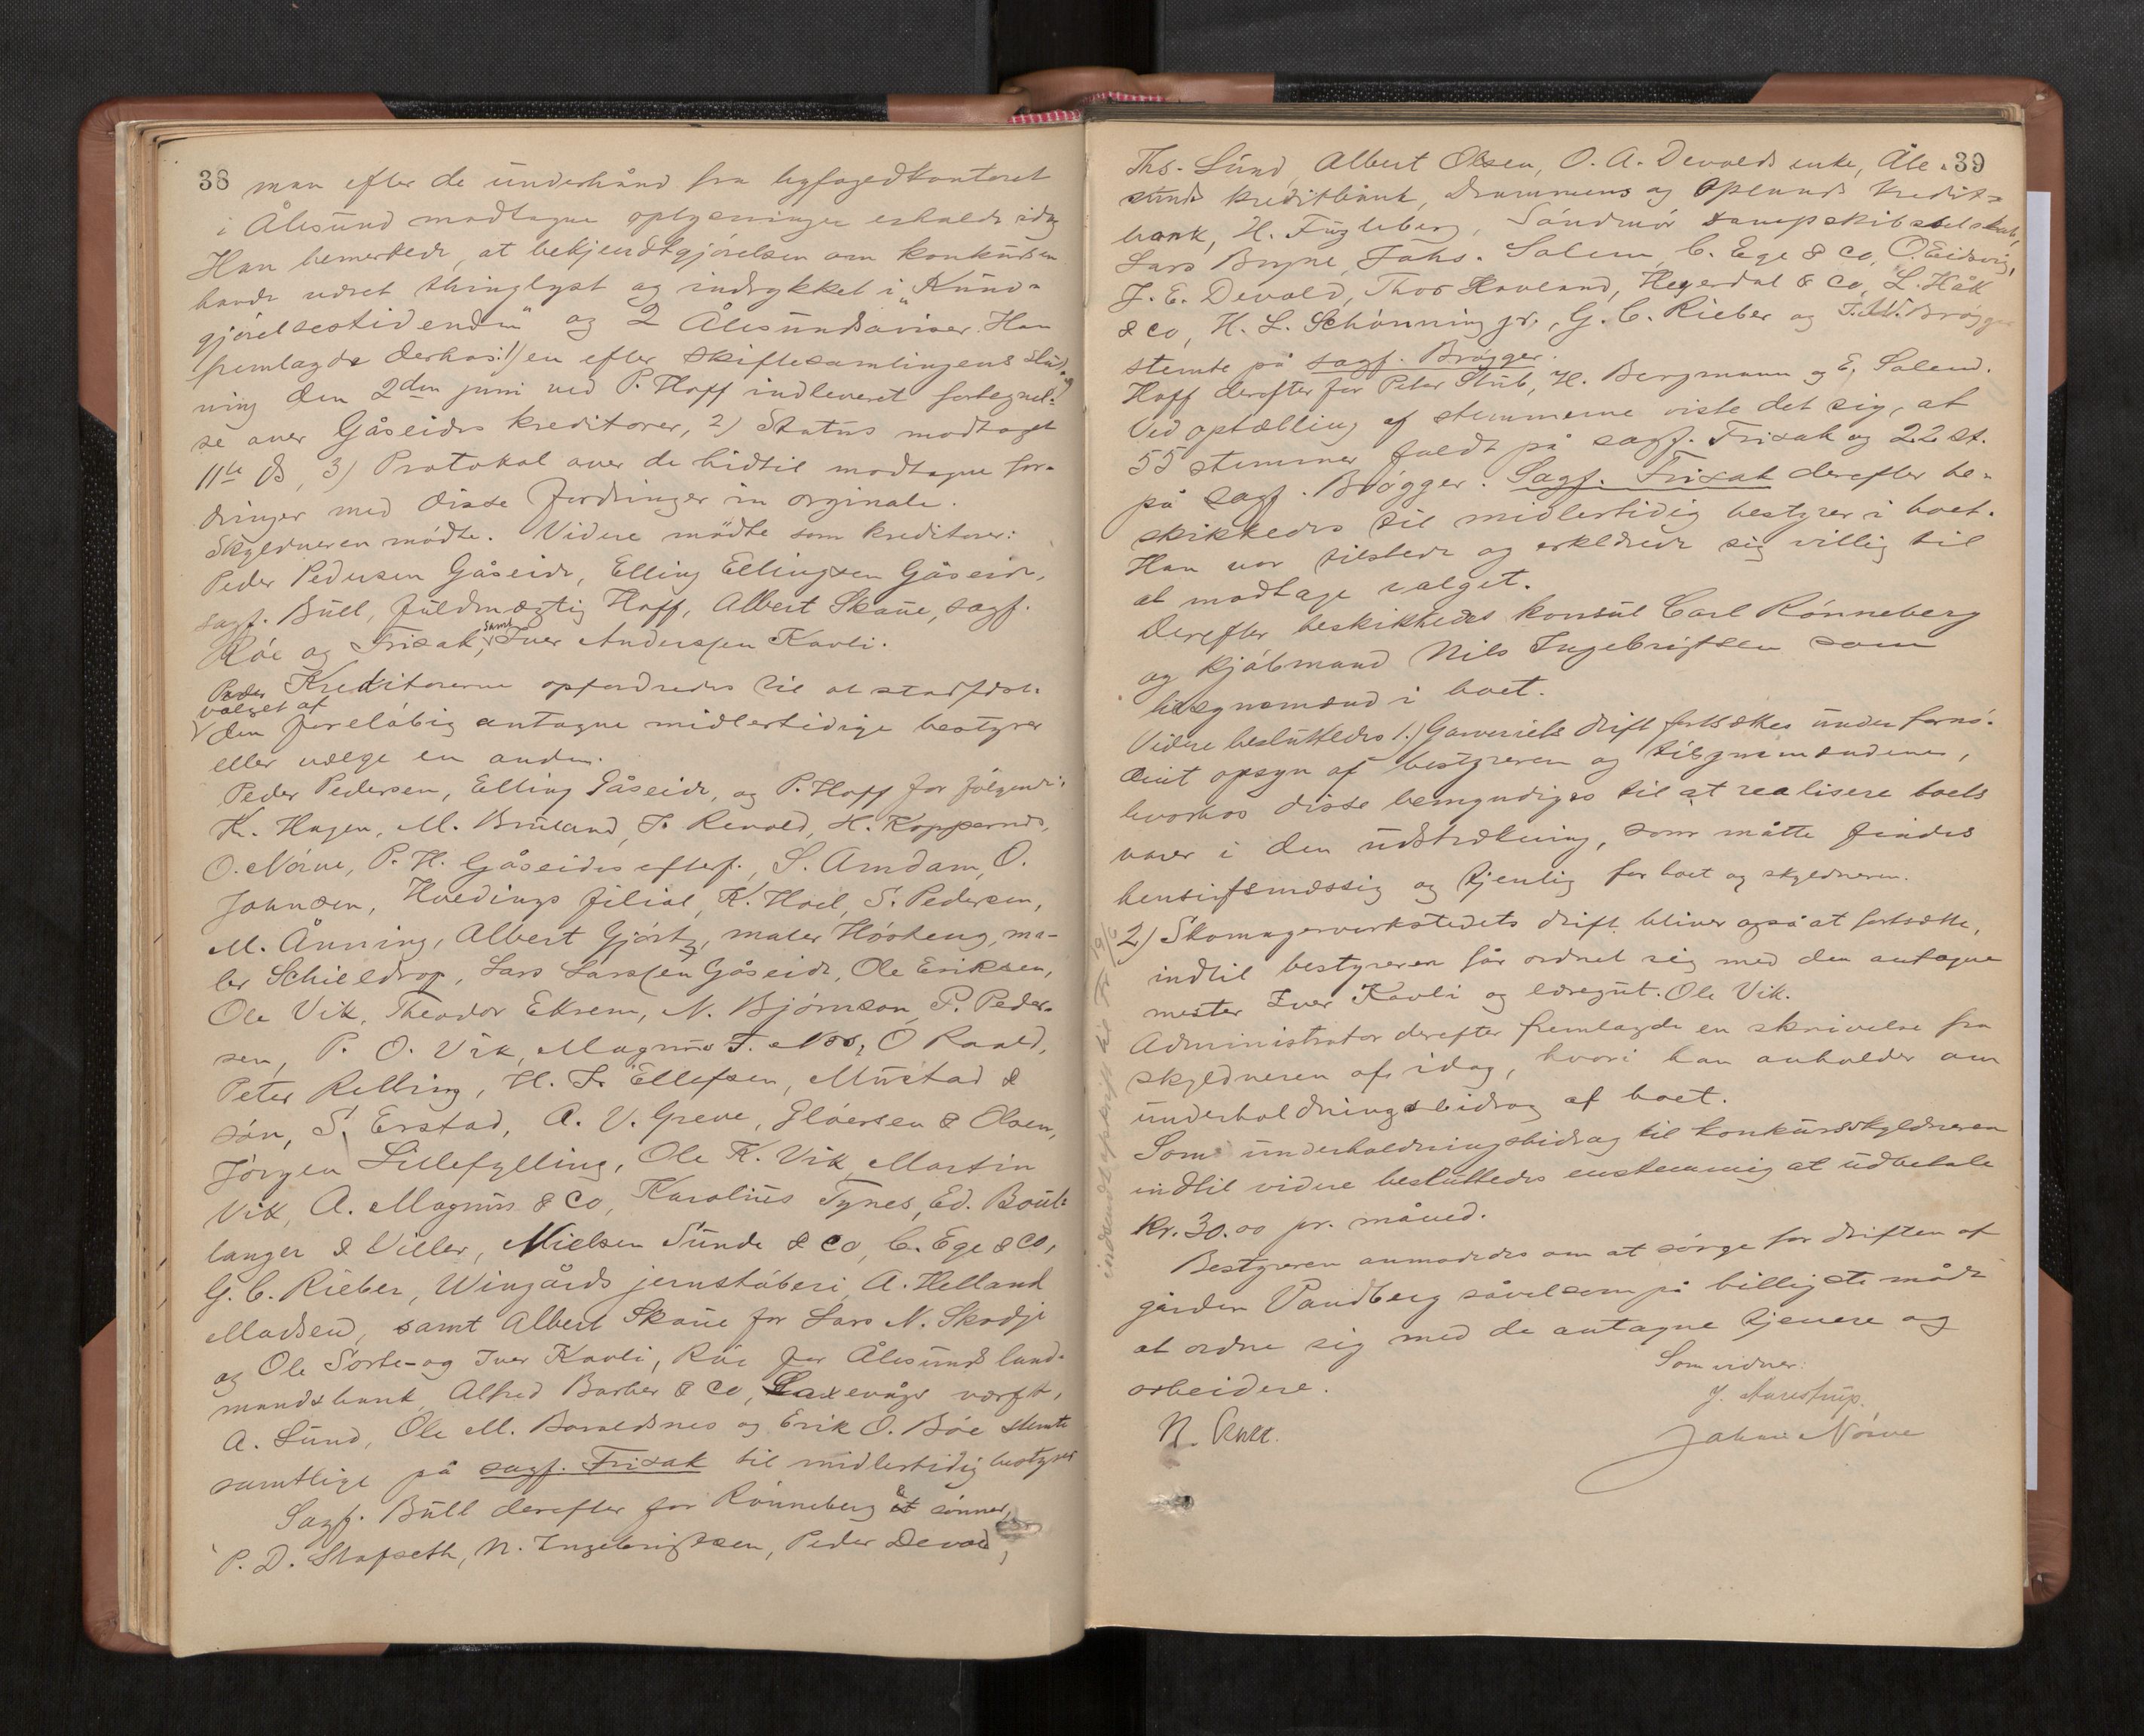 38 man efter de underhånd fra byfogedkontoret
i Ålesund modtagne oplysninger erholdt idag
Han bemerkede, at bekjendtgjørelsen om konkursen
havde været thinglyst og indrykket i "Kund-
gjørelsestidende" og 2 Ålesundsaviser. Han
fremlagde derhos: 1) en efter skiftesamlingens slut-
ning den 2den juni ved P. Hoff indleveret fortegnel-
se over Gåseides kreditorer, 2) Status modtaget
11te ds, 3) Protokol over de hidtil modtagne for-
dringer med disse fordringer in orginale.
Skyldneren mødte. Videre mødte som kreditorer:
Peder Pedersen Gåseide, Elling Ellingsen Gåseide,
sagf. Bull, fuldmægtig Hoff, Albert Skaue, sagf.
Röe og Frisak, samt Iver Anderssen Kavli.
Kreditorerne opfordredes til at stadfæste
valget af
den foreløbig antagne midlertidige bestyrer
eller vælge en anden.
Peder Pedersen, Elling Gåseide, og P. Hoff for følgende:
K. Hagen, M. Bruland, I. Revold, H. Koppernæs,
O. Nörve, P. H. Gåseides efterf., S. Amdam, O.
Johnsen, Hoedings filial, K. Hoel, S. Pedersen,
M. Ånning, Albert Gjörtz, maler Hösteng, ma-
ler Schieldrop, Lars Larssen Gåseide, Ole Eriksen,
Ole Vik, Theodor Ekrem, N. Björnson, P. Peder-
sen, P. O. Vik, Magnus T. Moe, O Raald,
Peter Relling, H. I. Ellefsen, Mustad &
sön, S. Erstad, A. V. Greve, Glöersen & Olsen,
Jörgen Lillefylling, Ole K. Vik, Martin
Vik, A. Magnus & Co, Karolius Tynes, Ed. Boul-
langer & Viller, Nielsen Sunde & Co, C. Ege & Co,
G. C. Rieber, Wingårds jernstöberi, A. Helland
Madsen, samt Albert Skaue for Lars N. Skodje
og Ole Sorte- og Iver Kavli, Röe for Ålesunds land-
mandsbank, Alfred Barber & Co, Laxevågs værft,
A. Sund, Ole M. Barstadnes og Erik O. Böe stemte
samtlige på sagf. Frisak til midlertidig bestyrer
Sagf. Bull derefter for Rönneberg & sönner,
P. D. Stafseth, N. Ingebrigtsen, Peder Devold,
Ths. Sund, Albert Olsen, O. A. Devolds enke, Åle- 39
sunds kreditbank, Drammens og Oplands kredit-
bank, H. Fugleberg, Söndmör dampskibsselskab,
Lars Bryne, Johs. Solem, C. Ege & Co, O. Eidsvig,
J. E. Devold, Thos Havland, Hegerdal & Co, L. Håk
& co, H. L. Schönning jr., G. C. Rieber og F. W. Brögger
stemte på sagf. Brögger.
Hoff derefter for Peter Stub, H. Bergmann og E. Solend.
Ved optælling af stemmerne viste det sig, at
55 stemmer faldt på sagf. Frisak og 22 st.
på sagf. Brøgger. Sagf. Frisak derefter be-
skikkedes til midlertidig bestyrer i boet.
Han var tilstede og erklærede sig villig til
at modtage valget.
Derefter beskikkedes konsul Carl Rönneberg
og kjöbmand Nils Ingebrigtsen som
tilsynsmænd i boet.
Videre besluttedes 1.) Garveriets drift fortsættes under fornö-
dent opsyn af bestyreren og tilsynsmændene,
hvorhos disse bemyndiges til at realisere boets
varer i den udstrækning, som måtte findes
hensigtsmæssig og tjenlig for boet og skyldneren.
2) Skomagerverkstedets drift bliver også at fortsætte,
indtil bestyreren får ordnet sig med den antagne
mester Iver Kavli og læregut Ole Vik.
Administrator derefter fremlagde en skrivelse fra
skyldneren af idag, hvori han anholder om
underholdningsbidrag af boet.
Som underholdningsbidrag til konkursskyldneren
indtil videre besluttedes enstemmig at udbetale
Kr. 30.00 pr. måned.
Bestyreren anmodedes om at sörge for driften af
gården Vandberg såvelsom på billigste måde
at ordne sig med de antagne tjenere og
arbeidere.
Som vidner:
J. Aarestrup.
Johan Nörve